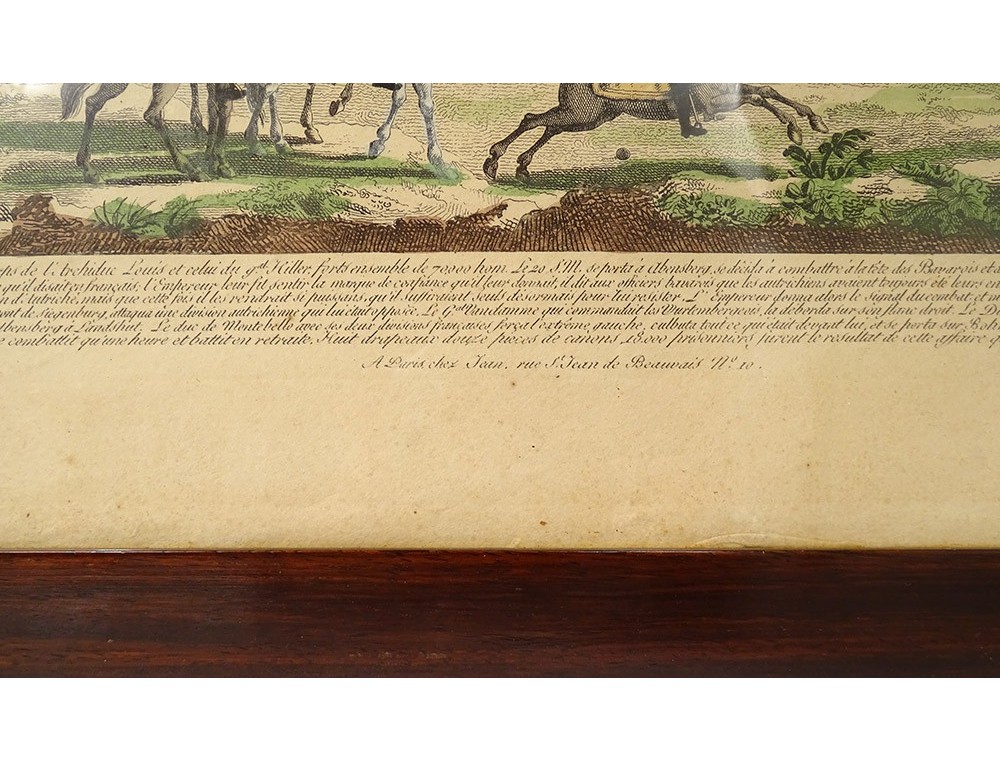 de l'Archiduc Louis et celui du g.al Hiller, forts ensemble de 70,000 hom. Le 20 S.M. se porta à Abensberg, se décida à combattre à la tête des Bavarois et
qu'il disait en français, l'Empereur leur fit sentir la marque de confiance qu'il leur donnait, il dit aux officiers bavarois que les autrichiens avaient toujours été leurs
d'autriche, mais que cette fois il les rendrait si puissans, qu'il suffiraient seuls désormais pour lui resister. L'Empereur donna alors le signal du combat et
de Siegenburg, attaqua une division autrichienne qui lui était opposée. Le G.al Vandamme qui commandait les Wurtembergeois, la deborda sur son flanc droit. Le
Abensberg à Landshut. Le duc de Montebello avec ses deux divisions françaises força l'extrême gauche, culbuta tout ce qui était devant lui, et se porta sur
combattit qu'une heure et battit en retraite. Huit drapeaux douze pieces de canons 18,000 prisonniers furent le resultat de cette affaire
A Paris, chez Jean, rue S.t Jean de Beauvais N.o 10.